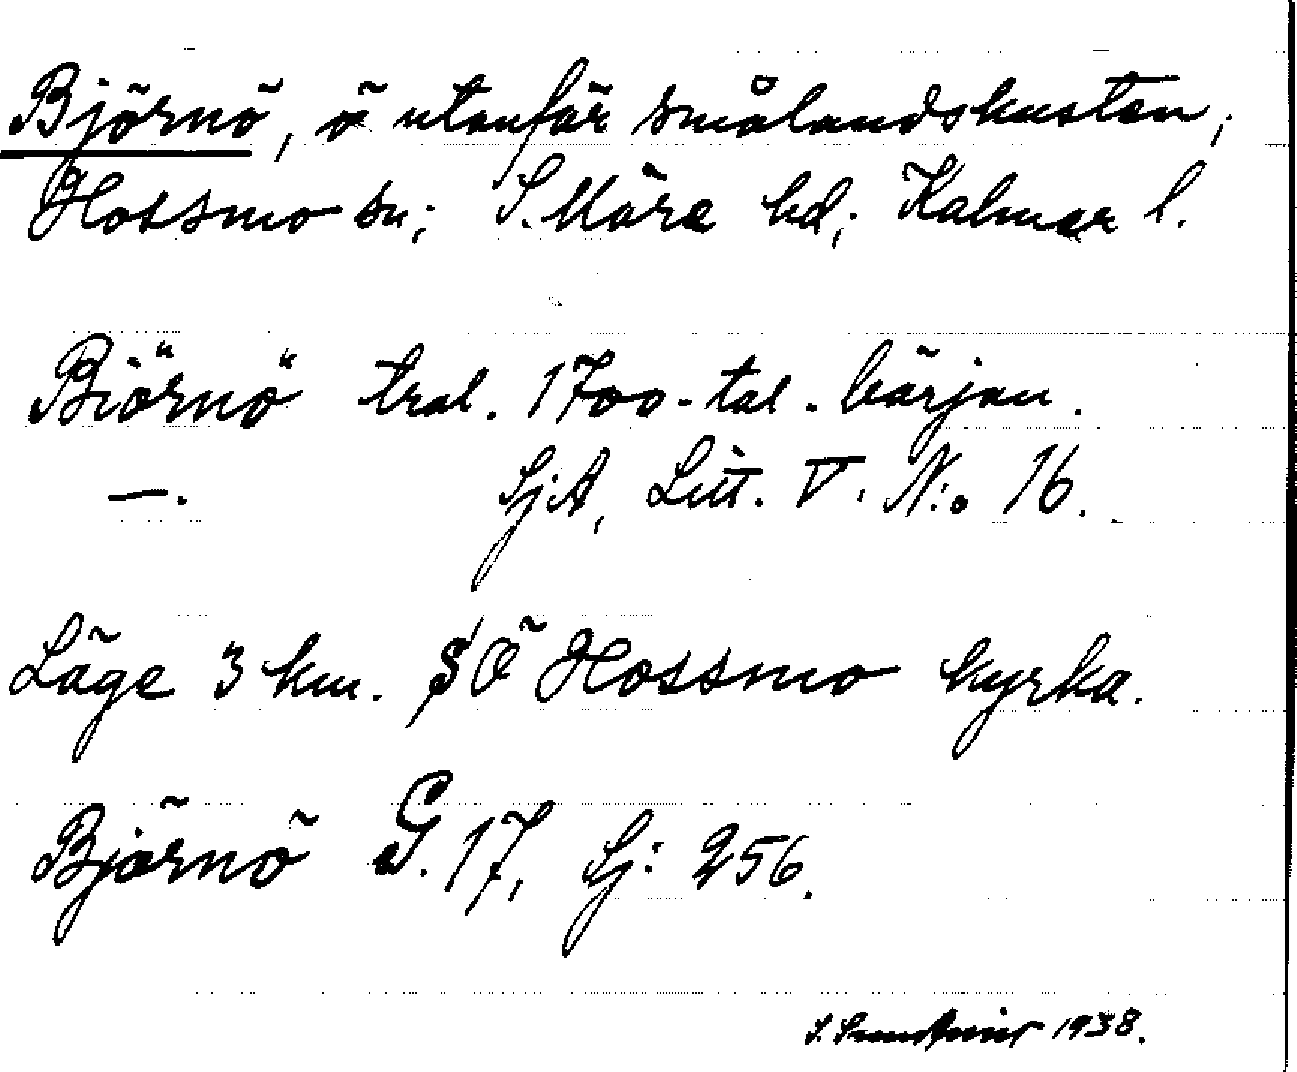 Björnö, ö utanför smålandskusten;
Hossmo sn; S. Möre hd; Kalmar l.
Biörnö tral. 1700-tal. början.
—. SjA, Litt. V. N:o 16.
Läge 3 km. SÖ Hossmo kyrka.
Björnö G. 17, Sj: 256.
1938.